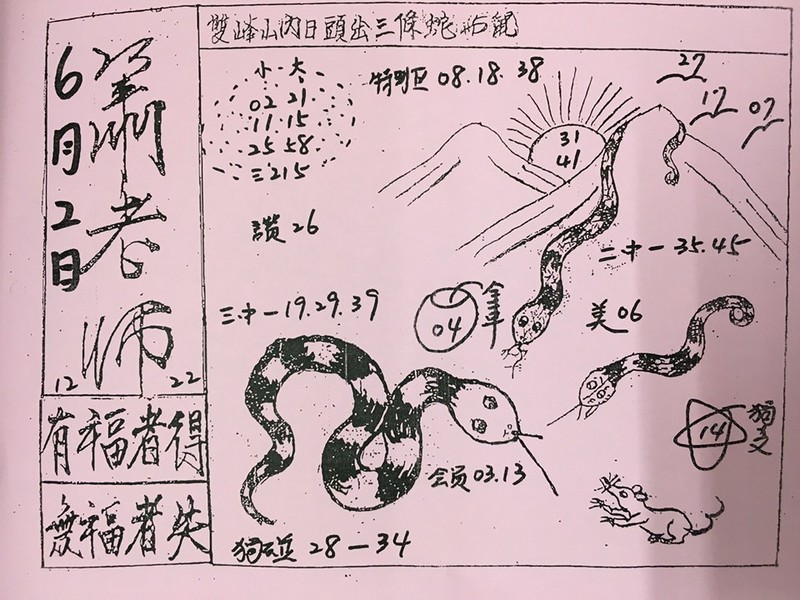 雙峰山內日頭出三條蛇祐鼠
6月2日
蕭老师
12 22
有福者得
無福者失
小 大
02 21
11 15
25 58
三 215
特別区 08.18.38
27
17
07
31
41
讚 26
二中一 35.45
三中一 19.29.39
04
全年
美 06
14
獨支
会员 03.13
28—34